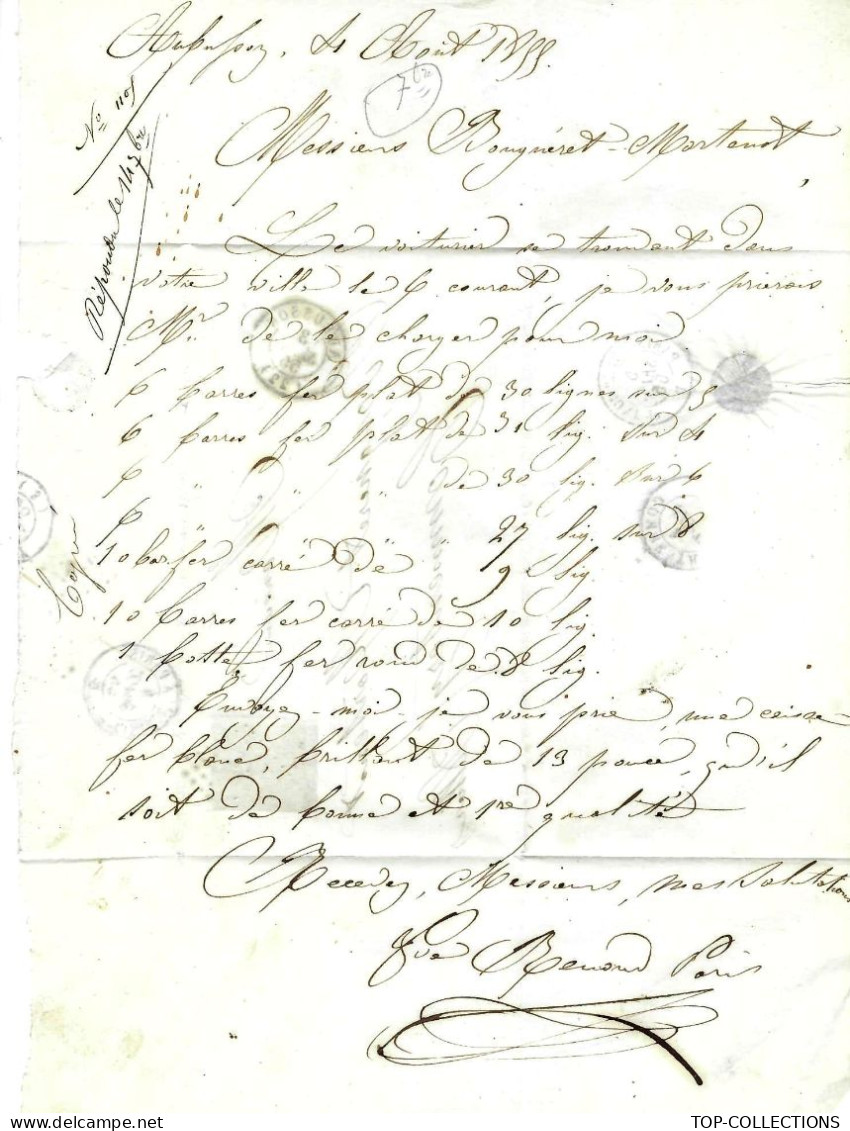 Aubusson, 4 Août 1855.
7bre
No 1105
Répondu le 14 7bre
Messieurs Bougueret-Martenot,
Le voiturier se trouvant dans
votre ville le 6 courant, je vous prierais
Mr. de le charger pour moi
6 barres fer plat de 30 lignes sur 5
6 barres fer plat de 31 lig. sur 4
6 " " " de 30 lig. sur 6
6 " " " 27 lig. sur 8
10 bar fer carré de 9 lig.
10 barres fer carré de 10 lig.
1 botte fer rond de 8 lig.
Copié
Envoyez-moi, je vous prie, une caisse
fer blanc, brillant de 13 pouce, qu'il
soit de bonne et 1re qualité
Recevez, Messieurs, mes salutations
Vve Renaud Paris
TOP-COLLECTIONS